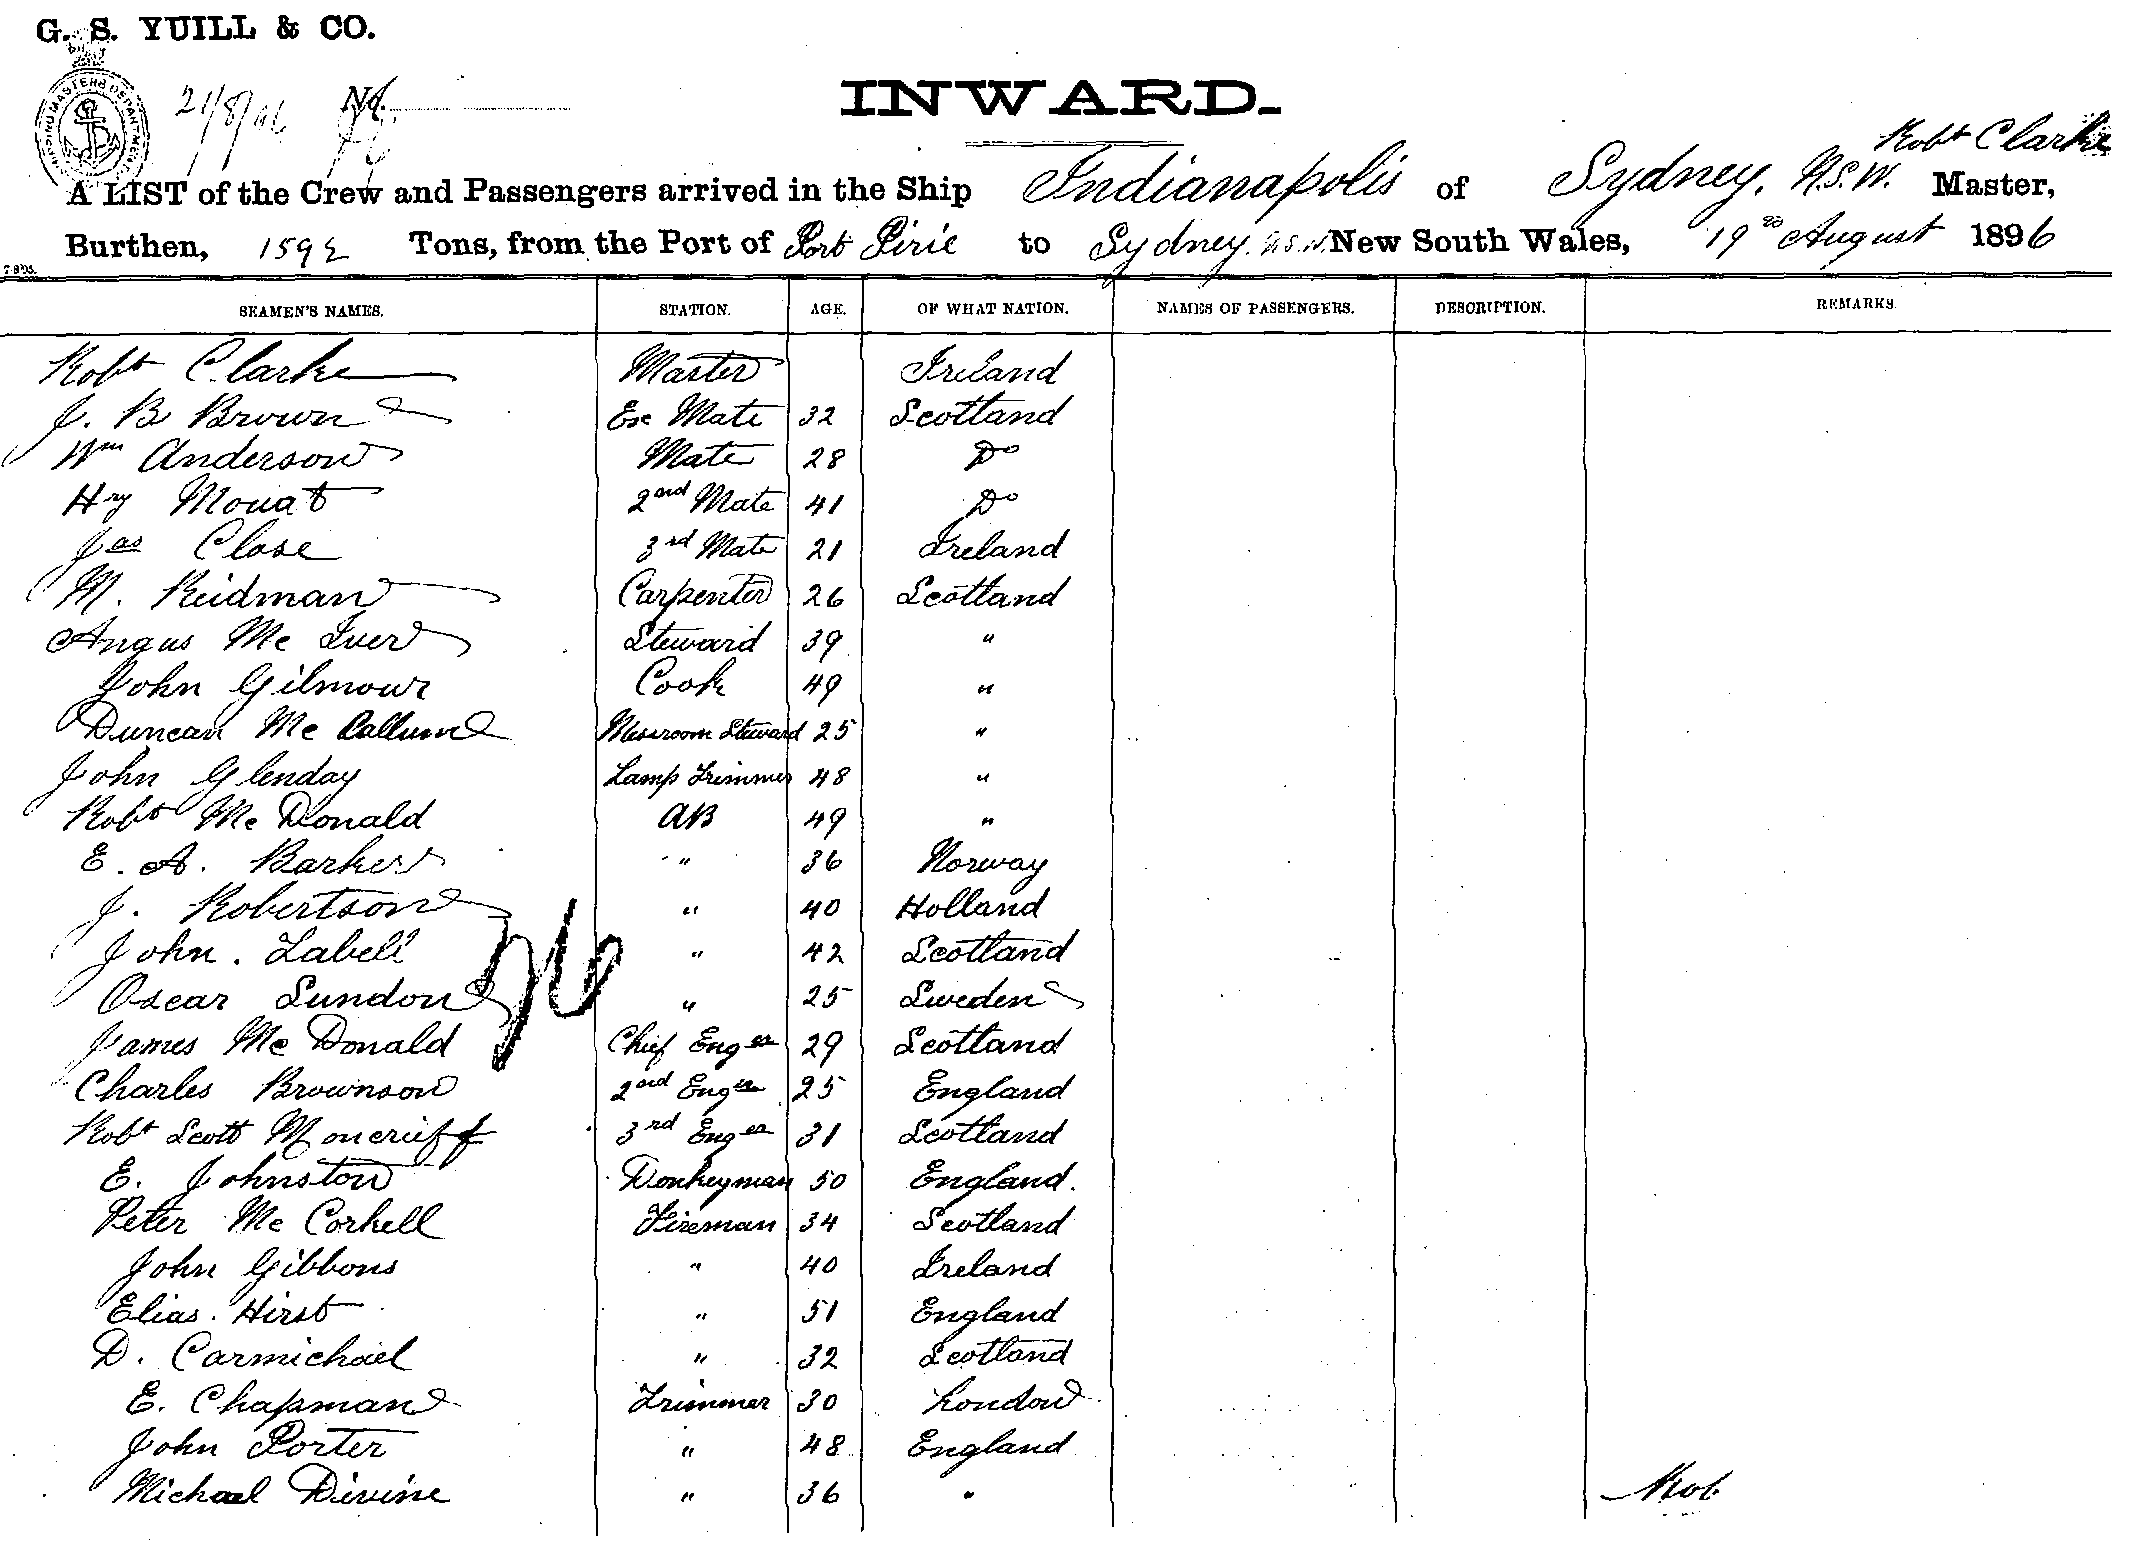 G. S. YUILL & CO.
SHIPPING MASTERS DEPARTMENT
21/8/96 No.
INWARD.
Robt Clarke
A LIST of the Crew and Passengers arrived in the Ship Indianapolis of Sydney. N.S.W. Master,
Burthen, 1592 Tons, from the Port of Port Pirie to Sydney. N.S.W. New South Wales, 19th August 1896
SEAMEN'S NAMES. STATION. AGE. OF WHAT NATION. NAMES OF PASSENGERS. DESCRIPTION. REMARKS
Robt Clarke Master Ireland
J. B Brown Ex Mate 32 Scotland
Wm Anderson Mate 28 Do
Hry Mouat 2nd Mate 41 Do
Jas Close 3rd Mate 21 Ireland
M. Reidman Carpenter 26 Scotland
Angus Mc Iver Steward 39 "
John Gilmour Cook 49 "
Duncan Mc Callum Messroom Steward 25 "
John Glenday Lamp Trimmer 48 "
Robt Mc Donald AB 49 "
E. A. Barker " 36 Norway
J. Robertson " 40 Holland
John. Labell " 42 Scotland
Oscar Lundon " 25 Sweden
26
James Mc Donald Chief Enger 29 Scotland
Charles Brownson 2nd Enger 25 England
Robt Scott Moncrieff 3rd Enger 31 Scotland
E. Johnston Donkeyman 50 England.
Peter Mc Corkell Fireman 34 Scotland
John Gibbons " 40 Ireland
Elias. Hirst " 51 England
D. Carmichael " 32 Scotland
E. Chapman Trimmer 30 London
John Porter " 48 England
Michael Divine " 36 "